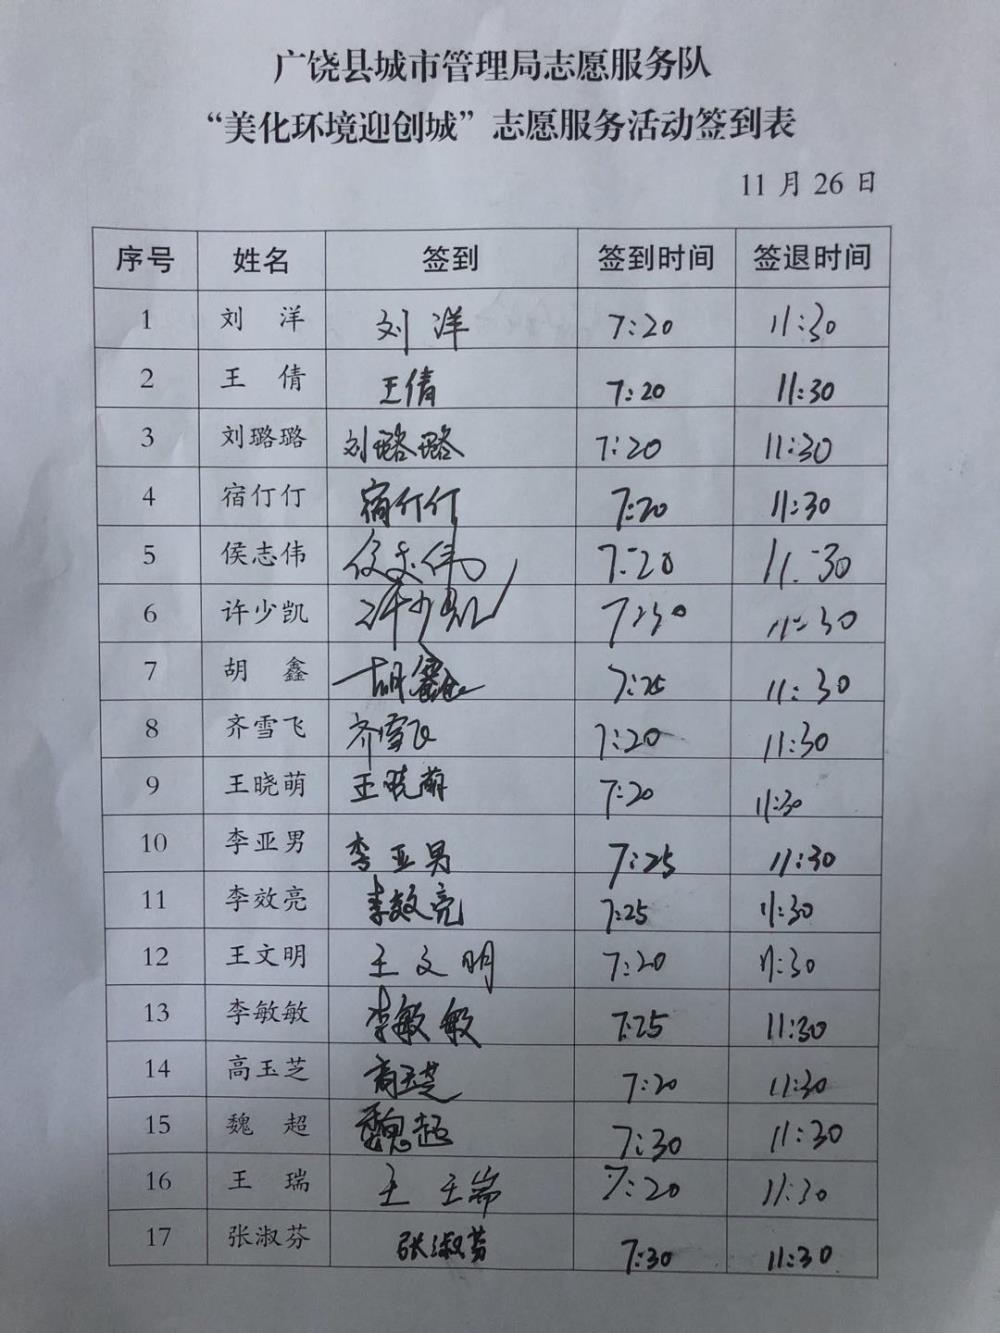 广饶县城市管理局志愿服务队
“美化环境迎创城”志愿服务活动签到表
11 月 26 日
序号 姓名 签到 签到时间 签退时间
1 刘 洋 刘洋 7:20 11:30
2 王 倩 王倩 7:20 11:30
3 刘璐璐 刘璐璐 7:20 11:30
4 宿仃仃 宿仃仃 7:20 11:30
5 侯志伟 侯志伟 7:20 11:30
6 许少凯 许少凯 7:30 11:30
7 胡 鑫 胡鑫 7:25 11:30
8 齐雪飞 齐雪飞 7:20 11:30
9 王晓萌 王晓萌 7:20 11:30
10 李亚男 李亚男 7:25 11:30
11 李效亮 李效亮 7:25 11:30
12 王文明 王文明 7:20 11:30
13 李敏敏 李敏敏 7:25 11:30
14 高玉芝 高玉芝 7:20 11:30
15 魏 超 魏超 7:30 11:30
16 王 瑞 王瑞 7:20 11:30
17 张淑芬 张淑芬 7:30 11:30